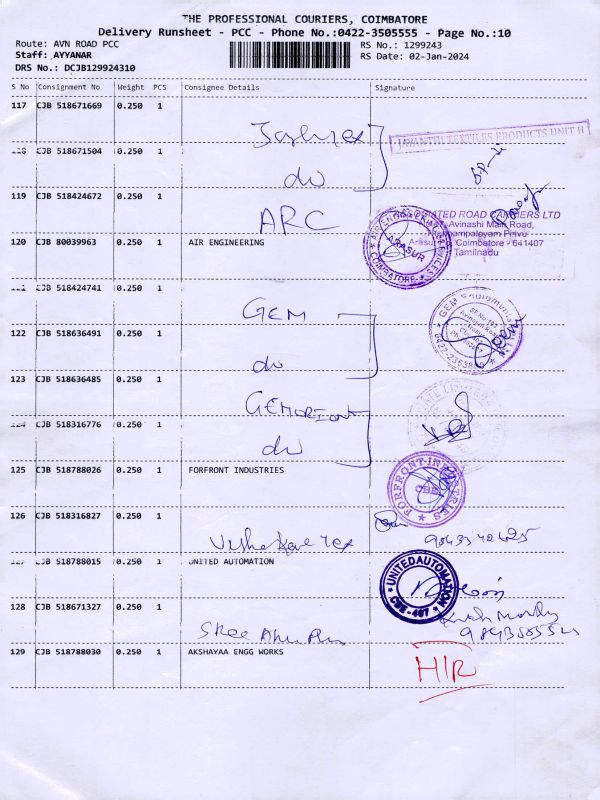 THE PROFESSIONAL COURIERS, COIMBATORE
Delivery Runsheet - PCC - Phone No.:0422-3505555 - Page No.:10
Route: AVN ROAD PCC RS No.: 1299243
Staff: AYYANAR RS Date: 02-Jan-2024
DRS No.: DCJB129924310
S No Consignment No Weight PCS Consignee Details Signature
117 CJB 518671669 0.250 1
JAYANTHI TEXTILES PRODUCTS UNIT II
CJB 518671504 0.250 1
do
119 CJB 518424672 0.250 1
ARC
ROAD CARRIERS LTD
Avinashi Main Road,
Coimbatore - 641407
Tamilnadu
ARASUR
COIMBATORE
120 CJB 80039963 0.250 1 AIR ENGINEERING
CJB 518424741 0.250 1
GEM
122 CJB 518636491 0.250 1
do
123 CJB 518636485 0.250 1
GEMORION
CJB 518316776 0.250 1
do
125 CJB 518788026 0.250 1 FORFRONT INDUSTRIES
FORFRONT INDUSTRIES
CBE
126 CJB 518316827 0.250 1
CJB 518788015 0.250 1 UNITED AUTOMATION
UNITED AUTOMATION
CBE-407
128 CJB 518671327 0.250 1
Sree
129 CJB 518788030 0.250 1 AKSHAYAA ENGG WORKS
H/R